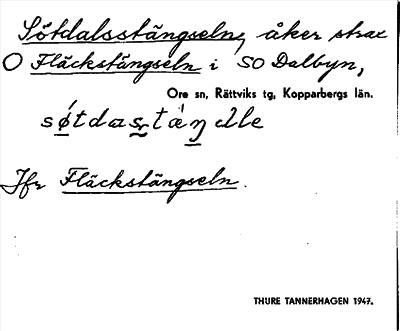 Sötdalsstängseln, åker strax
O Fläckstängseln i SO Dalbyn,
Ore sn, Rättviks tg, Kopparbergs län.
Jfr Fläckstängseln.
THURE TANNERHAGEN 1947.